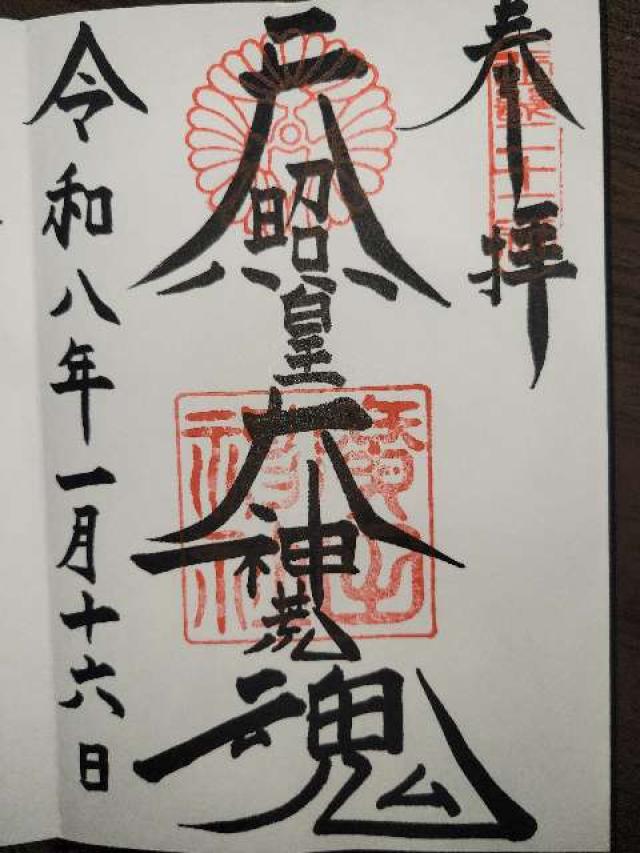 奉拝
天照皇大神荒魂
令和八年一月十六日